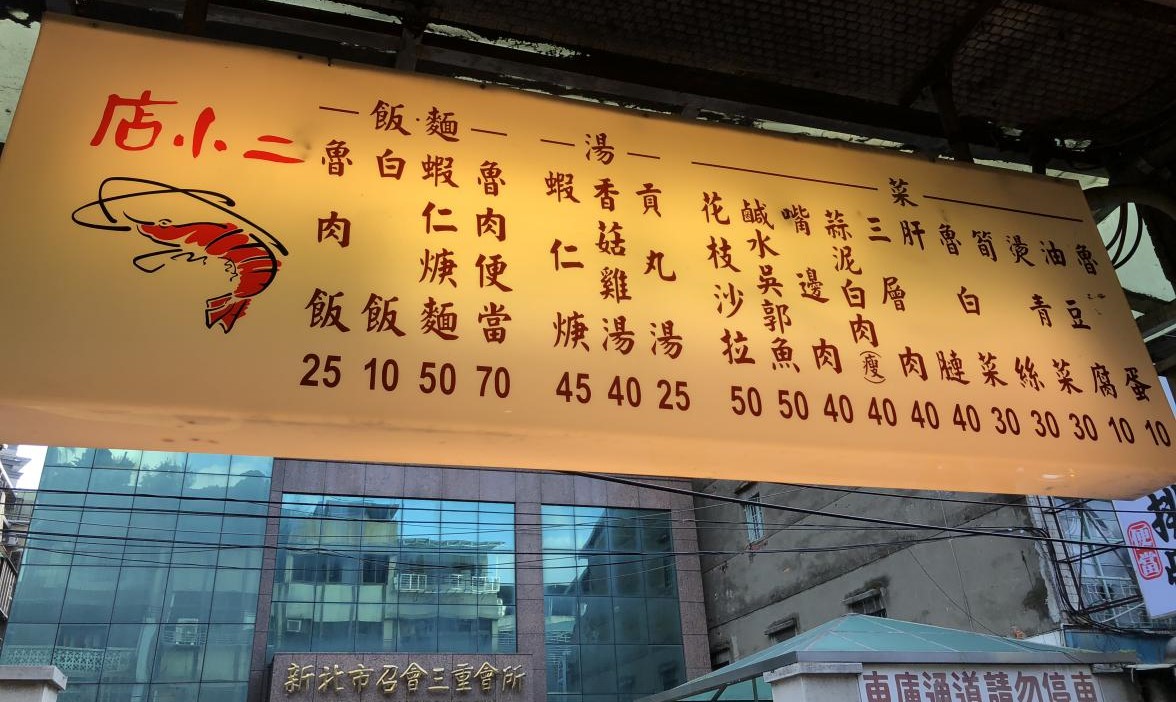 店小二
飯·麵
魯肉飯 25
白飯 10
蝦仁焿麵 50
魯肉便當 70
湯
蝦仁焿 45
香菇雞湯 40
貢丸湯 25
菜
花枝沙拉 50
鹹水吳郭魚 50
嘴邊肉 40
蒜泥白肉(瘦) 40
三層肉 40
肝 40
魯白菜 30
筍絲 30
燙青菜 30
油豆腐 10
魯蛋 10
便當
新北市召會三重會所
車庫通道請勿停車